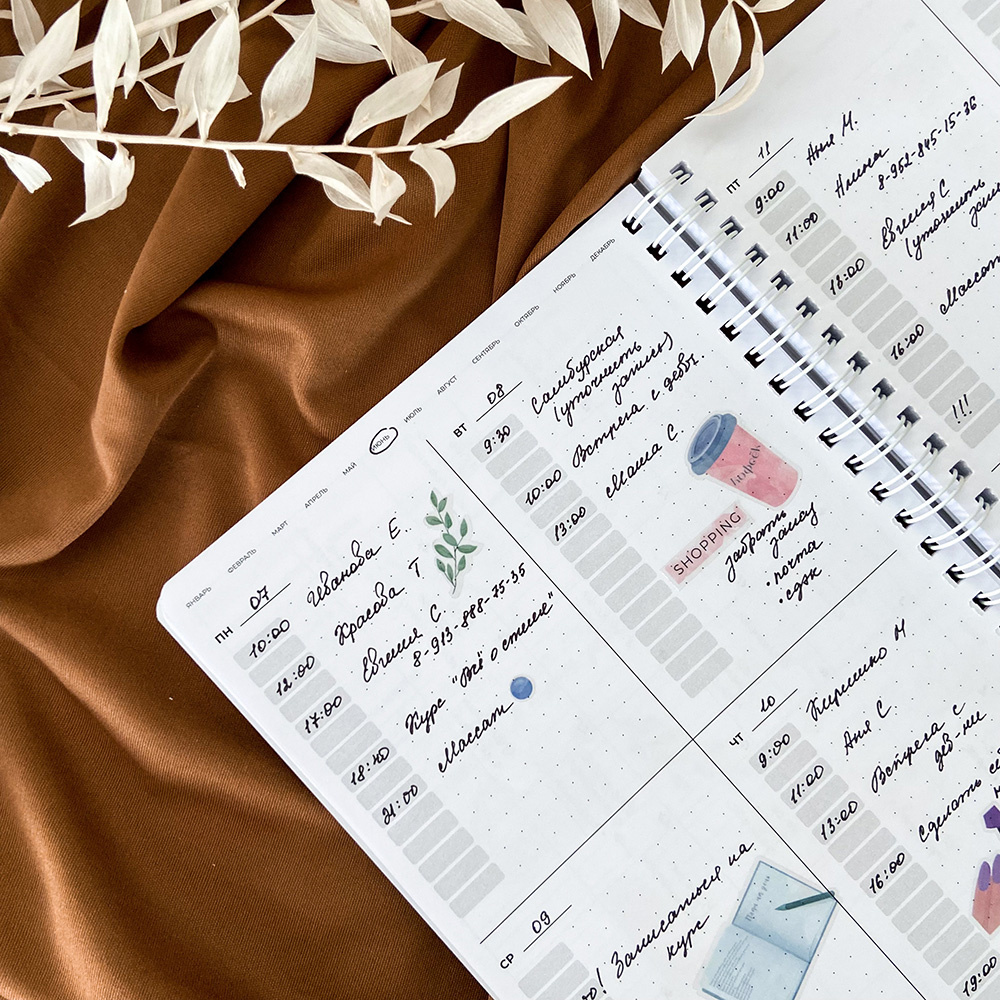 ЯНВАРЬ ФЕВРАЛЬ МАРТ АПРЕЛЬ МАЙ ИЮНЬ ИЮЛЬ АВГУСТ СЕНТЯБРЬ ОКТЯБРЬ НОЯБРЬ ДЕКАБРЬ
ПН 07
10:00 Иванова Е.
12:00 Красова Т
17:00 Евгения С.
8-913-888-75-35
18:40 Курс "Всё о стиле"
21:00 Массаж
ВТ 08
9:30 Самбурская
(уточнить
запись)
10:00 Встреча с девч.
13:00 Маша С.
кофеёк
SHOPPING
забрать
заказ
• почта
• сдэк
СР 09
! Записаться на
курс
ЧТ 10
9:00 Кириенко М
11:00 Аня С.
13:00 Встреча с
дев-ми
16:00 Сделать
19:00
ПТ 11
9:00 Аня М.
11:00 Алина
8-952-845-15-36
13:00 Евгения С
(уточнить
16:00 Массаж
!!!